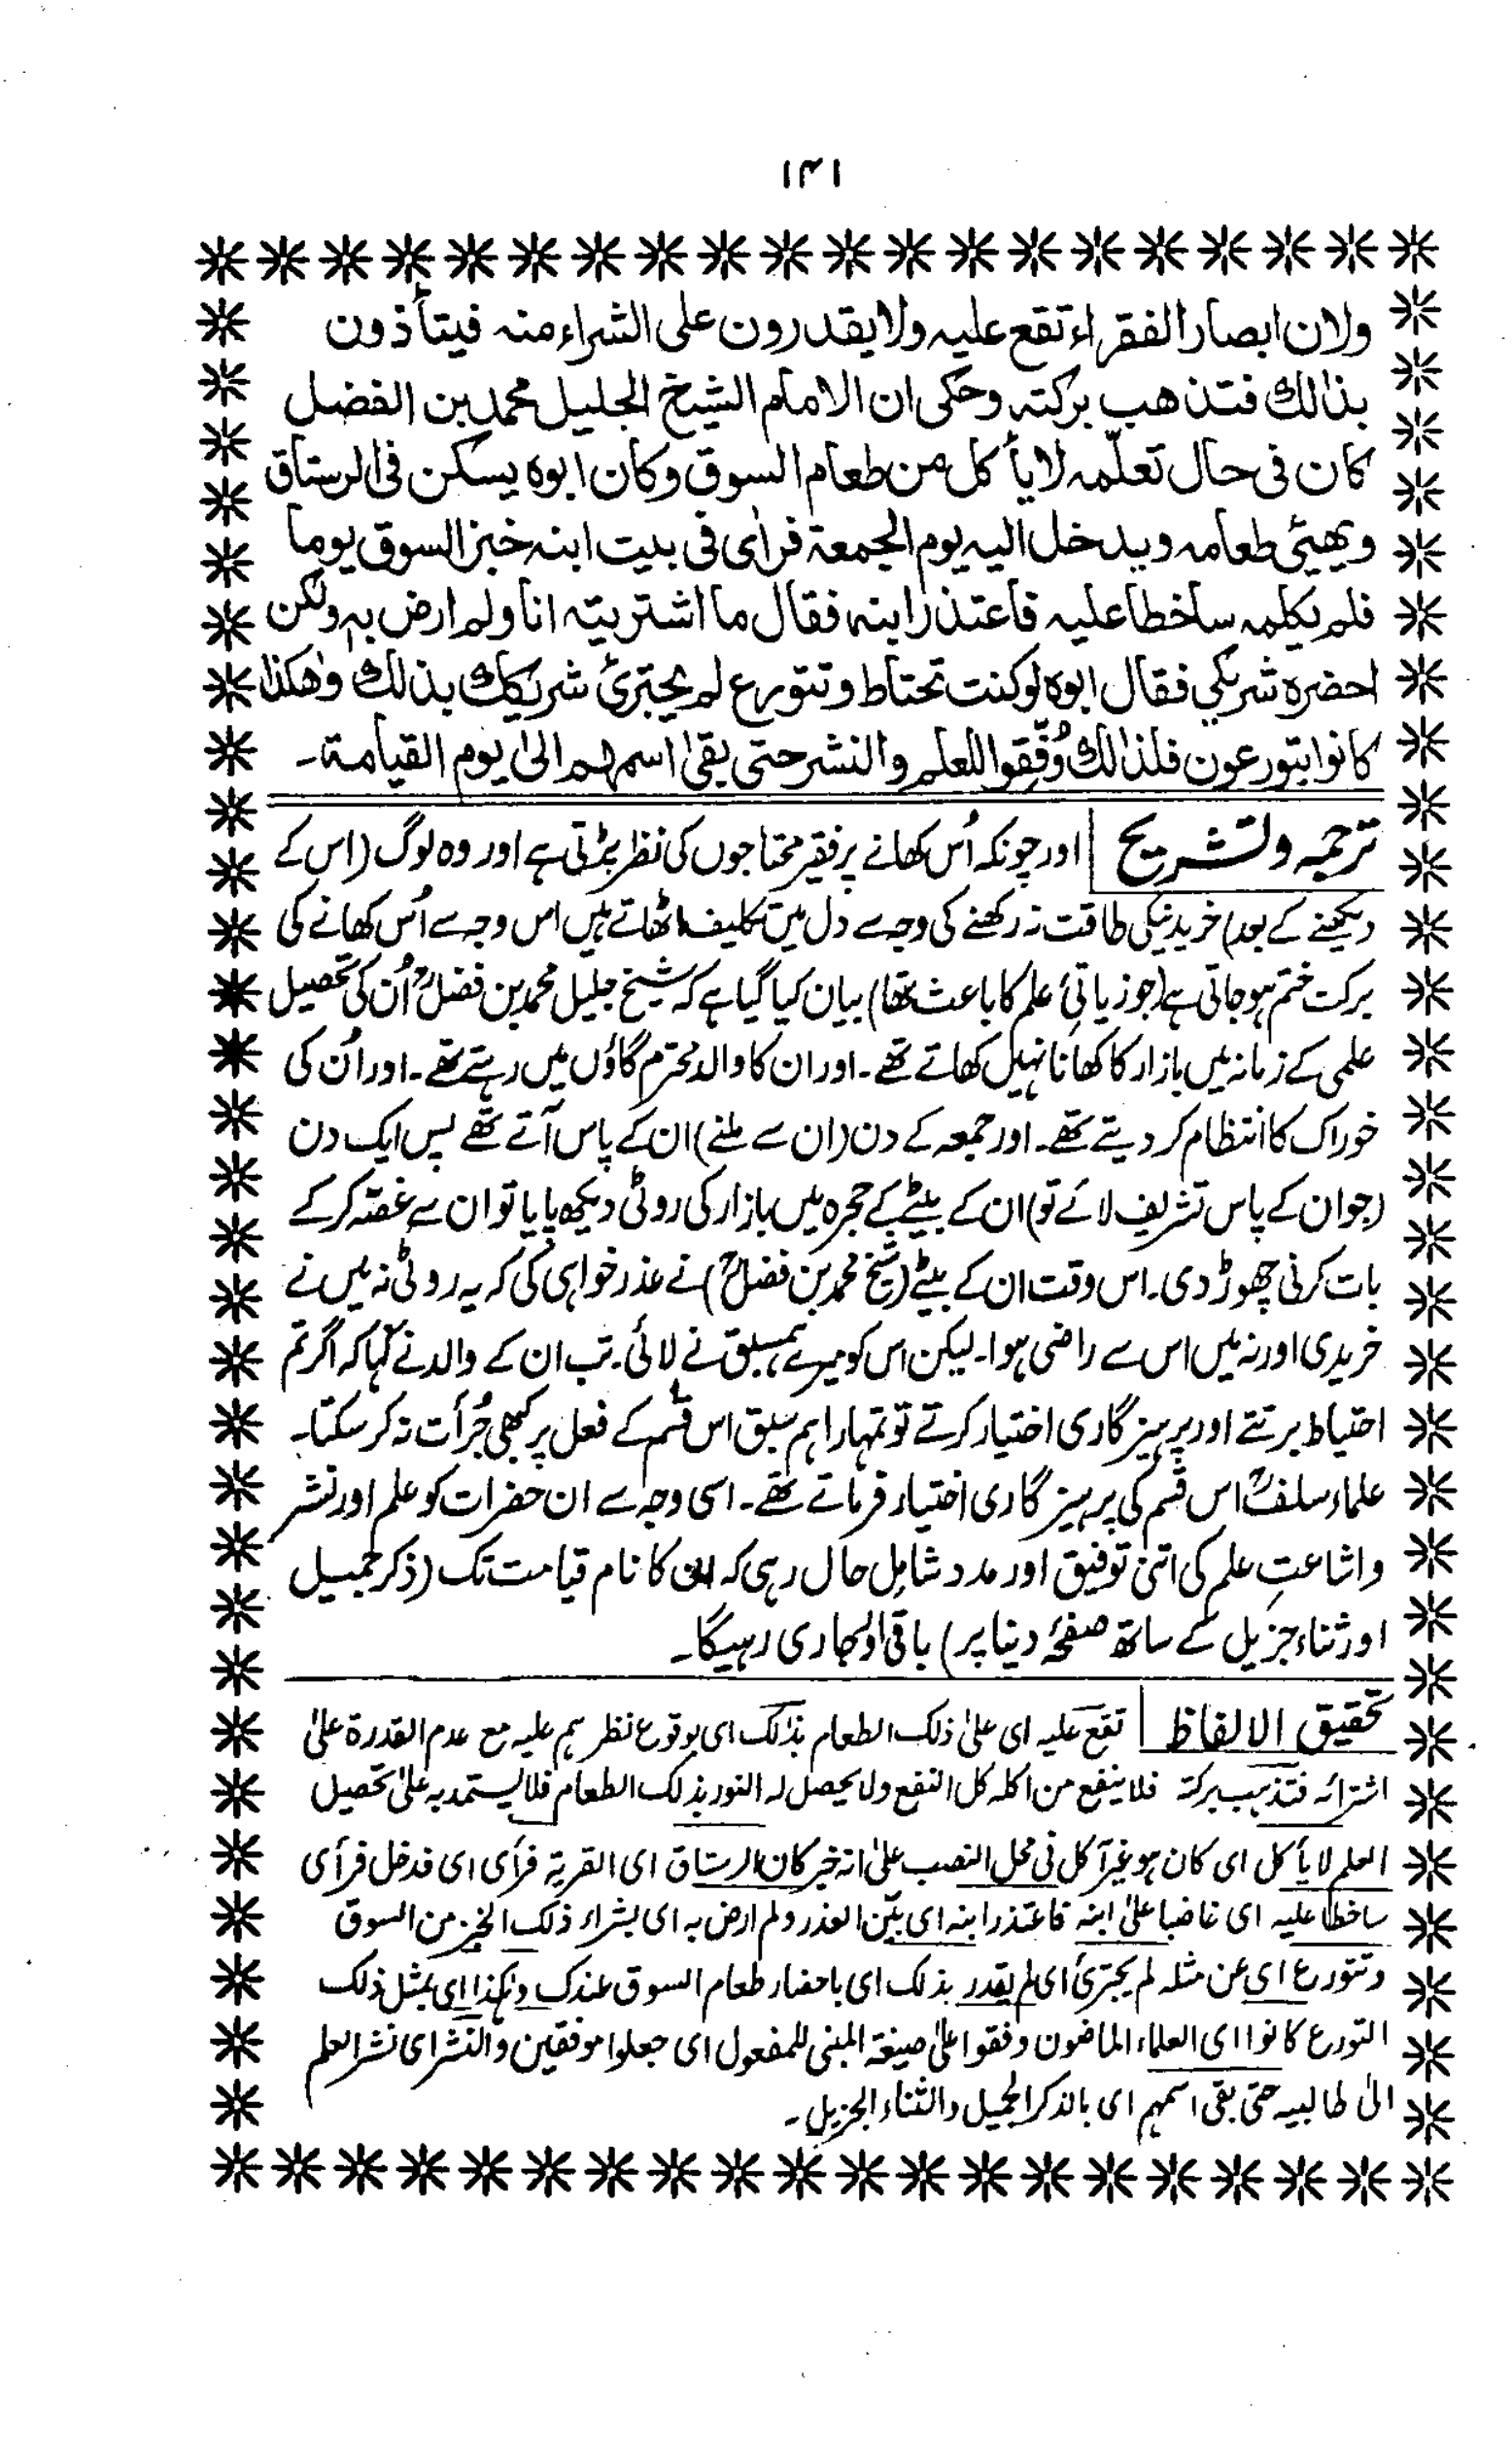 ۱۴۱
ولان ابصار الفقراء تقع عليه ولا يقدرون على الشراء منه فيتأذون
بذالك فتذهب بركته وحكى ان الامام الشيخ الجليل محمد بن الفضل
كان فى حال تعلّمه لا يأكل من طعام السوق وكان ابوه يسكن فى الرستاق
ويهيّئ طعامه ويدخل اليه يوم الجمعة فرأى فى بيت ابنه خبز السوق يوما
فلم يكلمه ساخطا عليه فاعتذر ابنه فقال ما اشتريته انا ولم ارض به ولكن
احضره شريكي فقال ابوه لو كنت تحتاط وتتورع لم يجترئ شريكك بذلك وهٰكذا
كانوا يتورعون فلذالك وُفِّقوا للعلم والنشر حتى بقى اسمهم الىٰ يوم القيامة۔
ترجمہ وتشریح اور چونکہ اُس کھانے پر فقیر محتاجوں کی نظر پڑتی ہے اور وہ لوگ (اس کے
دیکھنے کے بعد) خریدنیکی طاقت نہ رکھنے کی وجہ سے دل میں تکلیف اٹھاتے ہیں اس وجہ سے اُس کھانے کی
برکت ختم ہوجاتی ہے (جو زیاتیٔ علم کا باعث تھا) بیان کیا گیا ہے کہ شیخ جلیل محمد بن فضلؒ اُن کی تحصیل
علمی کے زمانہ میں بازار کا کھانا نہیں کھاتے تھے۔ اور ان کا والد محترم گاؤں میں رہتے تھے۔ اور اُن کی
خوراک کا انتظام کر دیتے تھے۔ اور جمعہ کے دن (ان سے ملنے) ان کے پاس آتے تھے پس ایک دن
(جو ان کے پاس تشریف لائے تو) ان کے بیٹے کے حجرہ میں بازار کی روٹی دیکھ پایا تو ان سے غصّہ کرکے
بات کرنی چھوڑ دی۔ اس وقت ان کے بیٹے (شیخ محمد بن فضلؒ) نے عذر خواہی کی کہ یہ روٹی نہ میں نے
خریدی اور نہ میں اس سے راضی ہوا۔ لیکن اس کو میرے ہمسبق نے لائی۔ تب ان کے والد نے کہا کہ اگر تم
احتیاط برتتے اور پرہیزگاری اختیار کرتے تو تمہارا ہم سبق اس قسم کے فعل پر کبھی جُرأت نہ کر سکتا۔
علماء سلفؒ اس قسم کی پرہیزگاری اختیار فرماتے تھے۔ اسی وجہ سے ان حضرات کو علم اور نشر
واشاعتِ علم کی اتنی توفیق اور مدد شامِل حال رہی کہ ان کا نام قیامت تک (ذکر جمیل
اور ثناء جزیل کے ساتھ صفحۂ دنیا پر) باقی اور جاری رہیگا۔
تحقیق الالفاظ تقع علیہ ای علیٰ ذلک الطعام بذٰلک ای بوقوع نظرہم علیہ مع عدم القدرة علیٰ
اشترائہ فتذہب برکتہ فلا ینفع من اکلہ کل النفع ولا یحصل لہ النور بذلک الطعام فلا یستمد بہ علیٰ تحصیل
العلم لا یأکل ای کان ہو غیر آکل فی محل النصب علیٰ انہ خبر کان الرستاق ای القریۃ فرأی ای فدخل فرأی
ساخطا علیہ ای غاضبا علیٰ ابنہ فاعتذر ابنہ ای بیّن العذر ولم ارض بہ ای بشراء ذلک الخبز من السوق
وتتورع ای عن مثلہ لم یجترئ ای لم یقدر بذلک ای باحضار طعام السوق عندک وہٰکذا ای بمثل ذلک
التورع کانوا ای العلماء الماضون وفقوا علیٰ صیغۃ المبنی للمفعول ای جعلوا موفقین والنشر ای نشر العلم
الیٰ طالبیہ حتی بقی اسمہم ای بالذکر الجمیل والثناء الجزیل۔